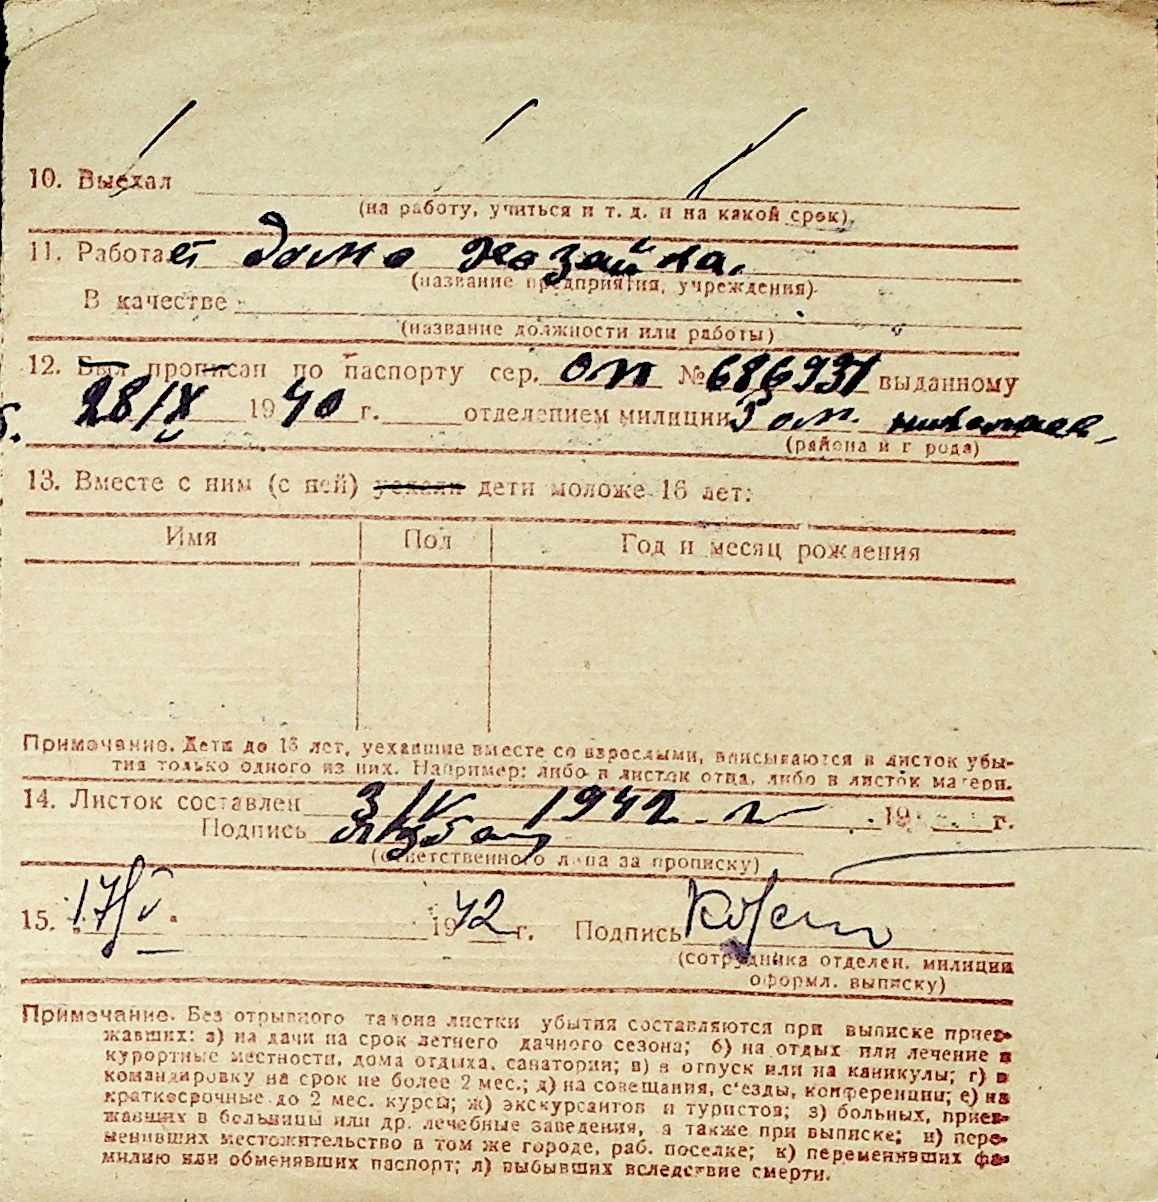 10. Выехал
(на работу, учиться и т. д. и на какой срок).
11. Работает домо хозайка.
(название предприятия, учреждения)
В качестве
(название должности или работы)
12. Был прописан по паспорту сер. ОП № 686937 выданному
28/IX 1940 г. отделением милиции 3 ом.
(района и города)
13. Вместе с ним (с ней) уехали дети моложе 16 лет:
Имя Пол Год и месяц рождения
Примечание. Дети до 15 лет, уехавшие вместе со взрослыми, вписываются в листок убы-
тия только одного из них. Например: либо в листок отца, либо в листок матери.
14. Листок составлен 3/V 1942 г. 19 г.
Подпись
(ответственного лица за прописку)
15. 17/V 1942 г. Подпись
(сотрудника отделен. милиции
оформл. выписку)
Примечание. Без отрывного талона листки убытия составляются при выписке приез-
жавших: а) на дачи на срок летнего дачного сезона; б) на отдых или лечение в
курортные местности, дома отдыха, санатории; в) в отпуск или на каникулы; г) в
командировку на срок не более 2 мес.; д) на совещания, с'езды, конференции; е) на
краткосрочные до 2 мес. курсы; ж) экскурсантов и туристов; з) больных, приез-
жавших в больницы или др. лечебные заведения, а также при выписке; и) пере-
менивших местожительство в том же городе, раб. поселке; к) переменивших фа-
милию или обменявших паспорт; л) выбывших вследствие смерти.